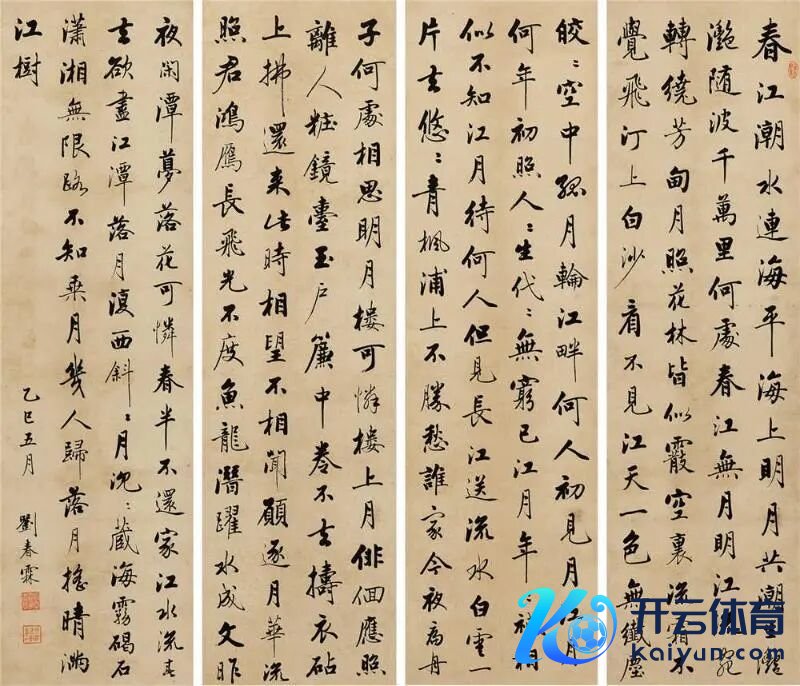 春江潮水連海平海上明月共潮生灔
灔随波千萬里何處春江無月明江流宛
轉繞芳甸月照花林皆似霰空裏流霜不
覺飛汀上白沙看不見江天一色無纖塵
皎〻空中孤月輪江畔何人初見月江月
何年初照人〻生代〻無窮已江月年
相
似不知江月待何人但見長江送流水白雲一
片去悠〻青楓浦上不勝愁誰家今夜扁舟
子何處相思明月樓可憐樓上月俳佪應照
離人粧鏡臺玉戶簾中卷不去擣衣砧
上拂還来此時相望不相聞願逐月華流
照君鴻雁長飛光不度魚龍潛躍水成文昨
夜閑潭夢落花可憐春半不還家江水流春
去欲盡江潭落月復西斜〻月沉〻藏海霧碣石
瀟湘無限路不知乘月幾人歸落月搖情滿
江樹
乙巳五月 劉春霖
开云体育
Kaiyun.com